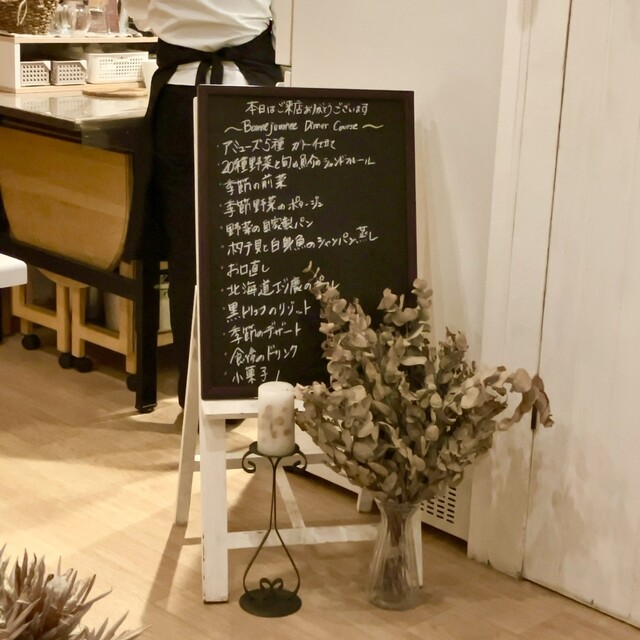 本日はご来店ありがとうございます
～Bonne femme Dinner Course～
アミューズ5種 ガトー仕立て
20種野菜と旬の魚介の
・季節の前菜
・季節野菜のポタージュ
・野菜の自家製パン
・ホタテ貝と白身魚のシャンパン蒸し
・お口直し
・北海道エゾ鹿の
・黒トリュフのリゾット
・季節のデザート
・食後のドリンク
・小菓子